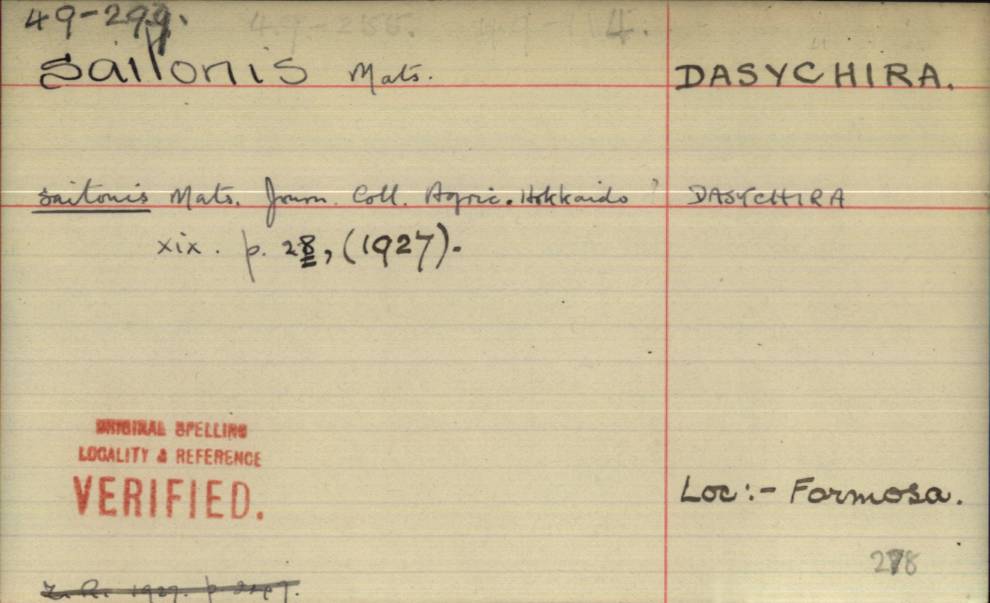 49-299.
49-255.
4.
saitonis Mats.
DASYCHIRA.
saitonis Mats. Journ. Coll. Agric. Hokkaido
DASYCHIRA
xix. p. 28, (1927).
ORIGINAL SPELLING
LOCALITY & REFERENCE
VERIFIED.
Loc:- Formosa.
278
Z. R. 1927. p.